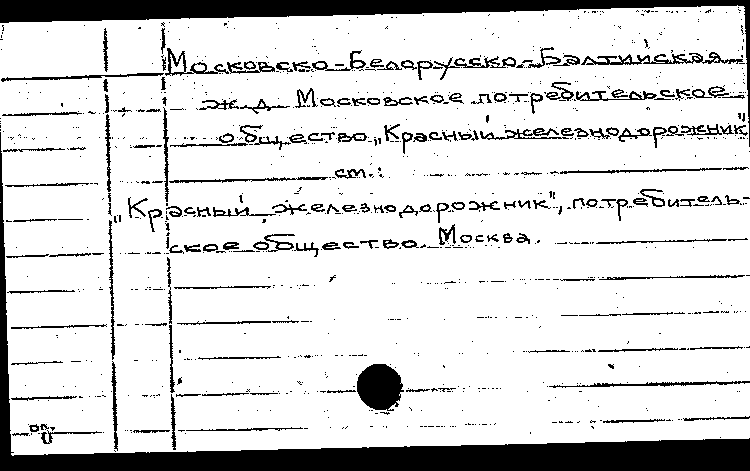 Московско-Белорусско-Балтийская
ж.д. Московское потребительское
общество „Красный железнодорожник"
см.:
„Красный железнодорожник", потребитель-
ское общество. Москва.